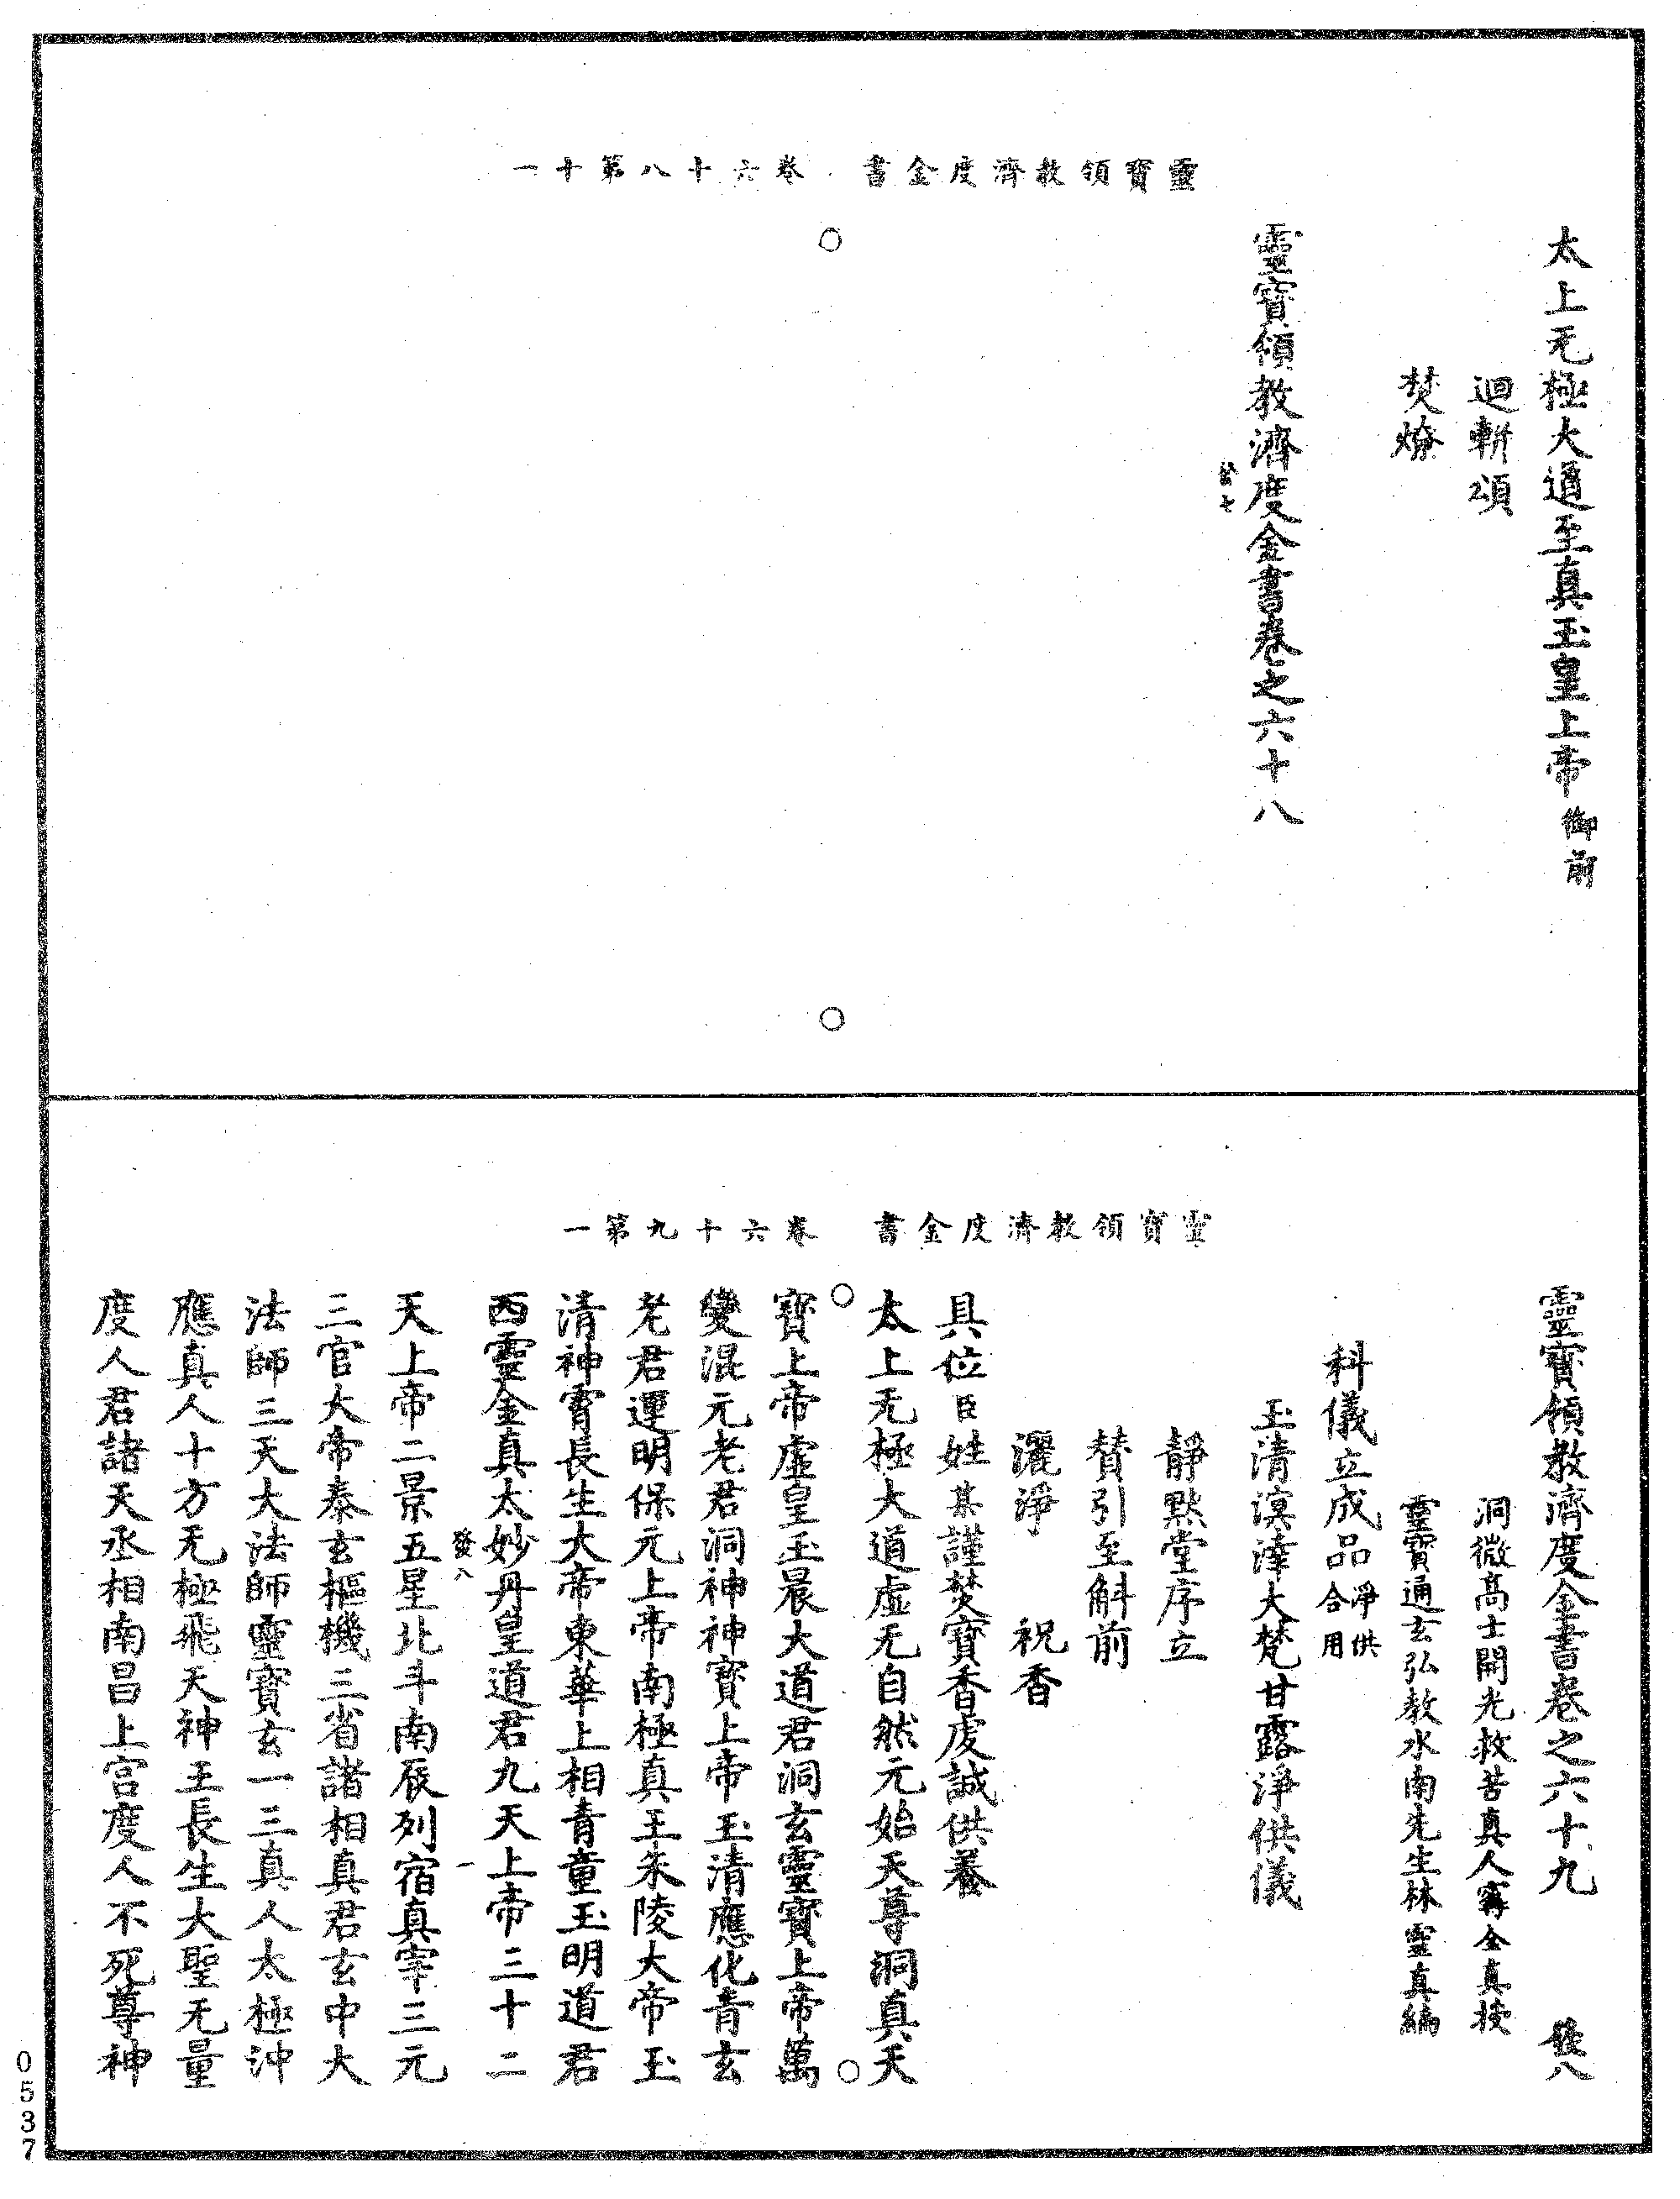 靈寶領教濟度金書　卷六十八第十一
太上无極大道至真玉皇上帝御前
迴軿頌
焚燎
靈寶領教濟度金書卷之六十八
發七
靈寶領教濟度金書　卷六十九第一
靈寶領教濟度金書卷之六十九　發八
洞微高士開光救苦真人甯全真授
靈寶通玄弘教水南先生林靈真編
科儀立成品淨供合用
玉清溟涬大梵甘露淨供儀
靜默堂序立
贊引至斛前
灑淨　祝香
具位臣姓某謹焚寶香虔誠供養
太上无極大道虛无自然元始天尊洞真天
寶上帝虛皇玉晨大道君洞玄靈寶上帝萬
變混元老君洞神神寶上帝玉清應化青玄
老君運明保元上帝南極真王朱陵大帝玉
清神霄長生大帝東華上相青童玉明道君
西靈金真太妙丹皇道君九天上帝三十二
發八　一
天上帝二景五星北斗南辰列宿真宰三元
三官大帝泰玄樞機三省諸相真君玄中大
法師三天大法師靈寶玄一三真人太極沖
應真人十方无極飛天神王長生大聖无量
度人君諸天丞相南昌上宮度人不死尊神
0537